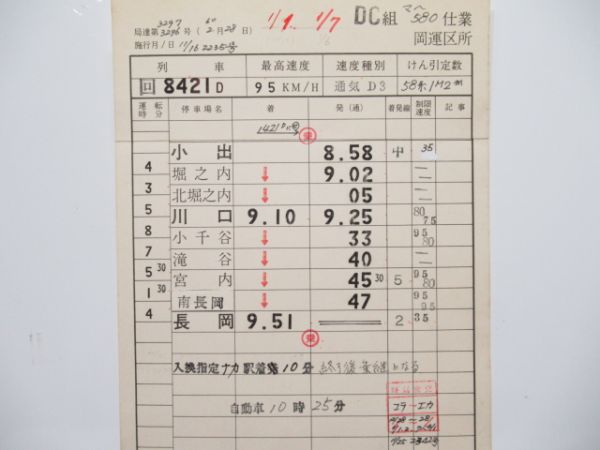 3297 60
局達第3296号 ( 2月28日)
施行月日 11/16 2235号
1/9. 1/7
DC組 580 仕業
岡運区所
列車 最高速度 速度種別 けん引定数
回 8421D 95KM/H 通気 D3
運転時分 停車場名 着 発(通) 着発線 制限速度 記事
乗
小出 8.58 中 35
4
堀之内 ↓ 9.02 =
3
北堀之内 ↓ 05 =
5
川口 9.10 9.25 80 75
8
小千谷 ↓ 33 95 80
7
滝谷 ↓ 40 =
5 30
宮内 ↓ 45 30 5 95 80
1 30
南長岡 ↓ 47 95 95
4
長岡 9.51 2 35
乗
入換指定ナカ駅着発10分
自動車10時25分
コラーエカ